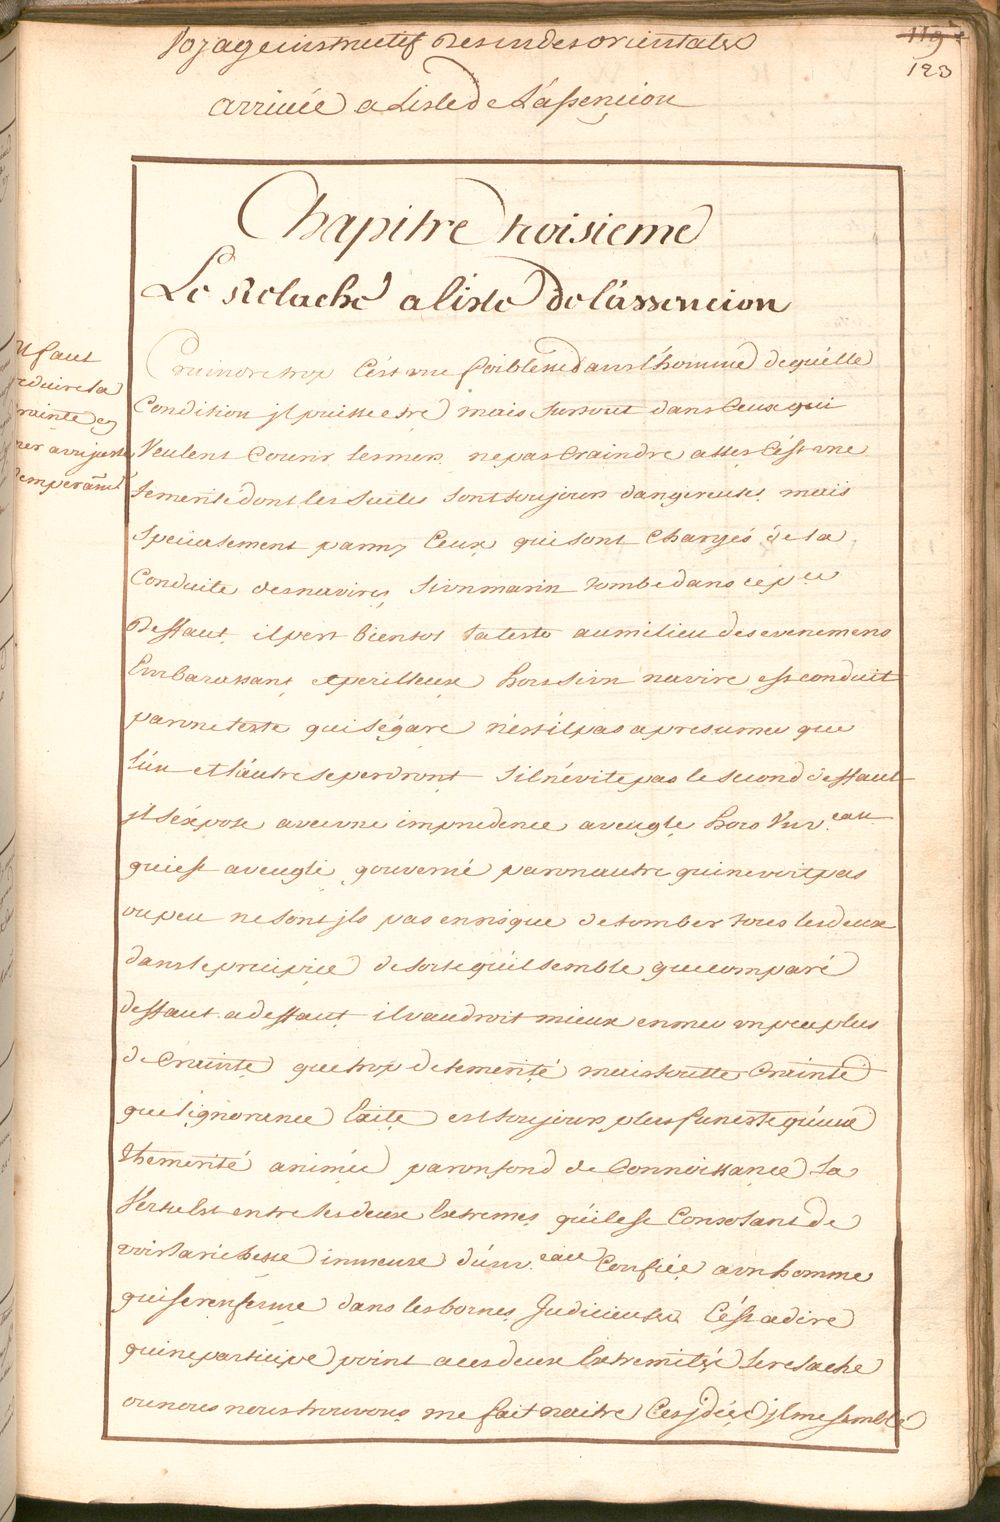 Voyage instructif Des indes orientales
119
123
arrivée a Lisle de Lássencion
Chapitre troisieme
Le Relache a lisle de lássencion
Il faut
reduire la
crainte en
mer a un juste
temperāmt
Craindre trop Cést une foiblesse dans lhomme de quélle
Condition jl puisse estre mais surtout dans Ceux qui
Veulent Courir les mers. ne pas Craindre asses Cést une
temerité dont les suites sont toujours dangereuses mais
specialement parmy Ceux qui sont Chargés de la
Conduite des navires si un marin tombe dans cé pr
deffaut il pert bientot la teste au milieu des evenemens
Embarassans et perilleux hors si un navire est conduit
par une teste qui ségare nést il pas a presumer que
lún et láutre se perdront sil névite pas le second deffaut
jl séxpose avec une imprudence aveugle hors Un Veau
qui est aveugle gouverné par un autre qui ne voit pas
ou peu ne sont jls pas en risque de tomber tous les deux
dans le precipice de sorte qúil semble que comparé
deffaut a deffaut il vaudroit mieux en mer un peu plus
de Crainte que trop de temerité mais toutte Crainte
que lignorance Exite est toujours plus funeste qúune
themerité animée par un fond de Connoissance La
Vertu Est entre les deux Extremes qúil est Consolant de
voir la richesse immense dún Veau Confiée a un homme
qui se renferme dans les bornes Judicieuses Cést a dire
qui ne participe point a ces deux Extremités le relache
ou nous nous trouvons me fait naitre Ces jdées jl me semble